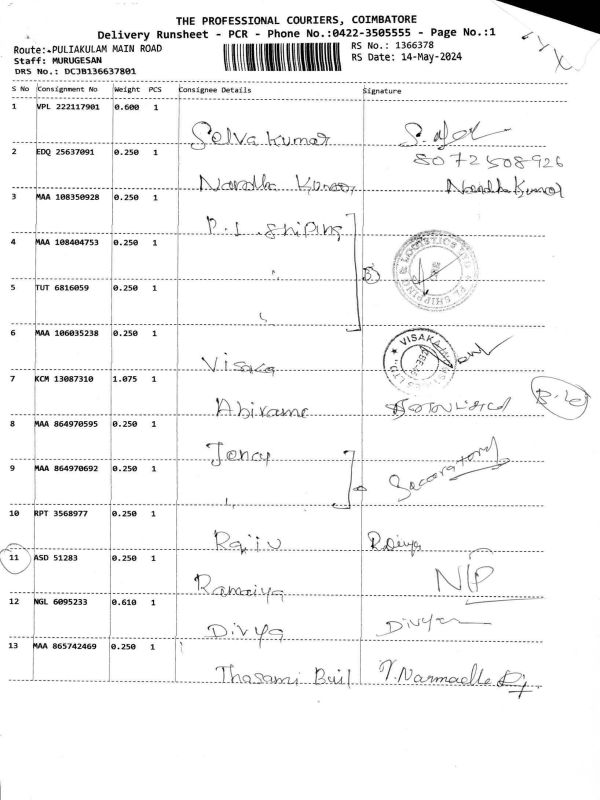 THE PROFESSIONAL COURIERS, COIMBATORE
Delivery Runsheet - PCR - Phone No.:0422-3505555 - Page No.:1
Route: PULIAKULAM MAIN ROAD
RS No.: 1366378
Staff: MURUGESAN
RS Date: 14-May-2024
DRS No.: DCJB136637801
S No Consignment No Weight PCS Consignee Details Signature
1 VPL 222117901 0.600 1
Selva Kumar
8072508926
2 EDQ 25637091 0.250 1
Nandha Kumar Nandha Kumar
3 MAA 108350928 0.250 1
P.L Shiping
4 MAA 108404753 0.250 1
"
(3)
SHIPPING & LOGISTICS
5 TUT 6816059 0.250 1
"
6 MAA 106035238 0.250 1
Visaka
VISAKA
7 KCM 13087310 1.075 1
Abirame
8 MAA 864970595 0.250 1
Jency
9 MAA 864970692 0.250 1
"
10 RPT 3568977 0.250 1
Rajiv
11 ASD 51283 0.250 1
Ramaiya N/P
12 NGL 6095233 0.610 1
Divya Divya
13 MAA 865742469 0.250 1
Thasami Buil